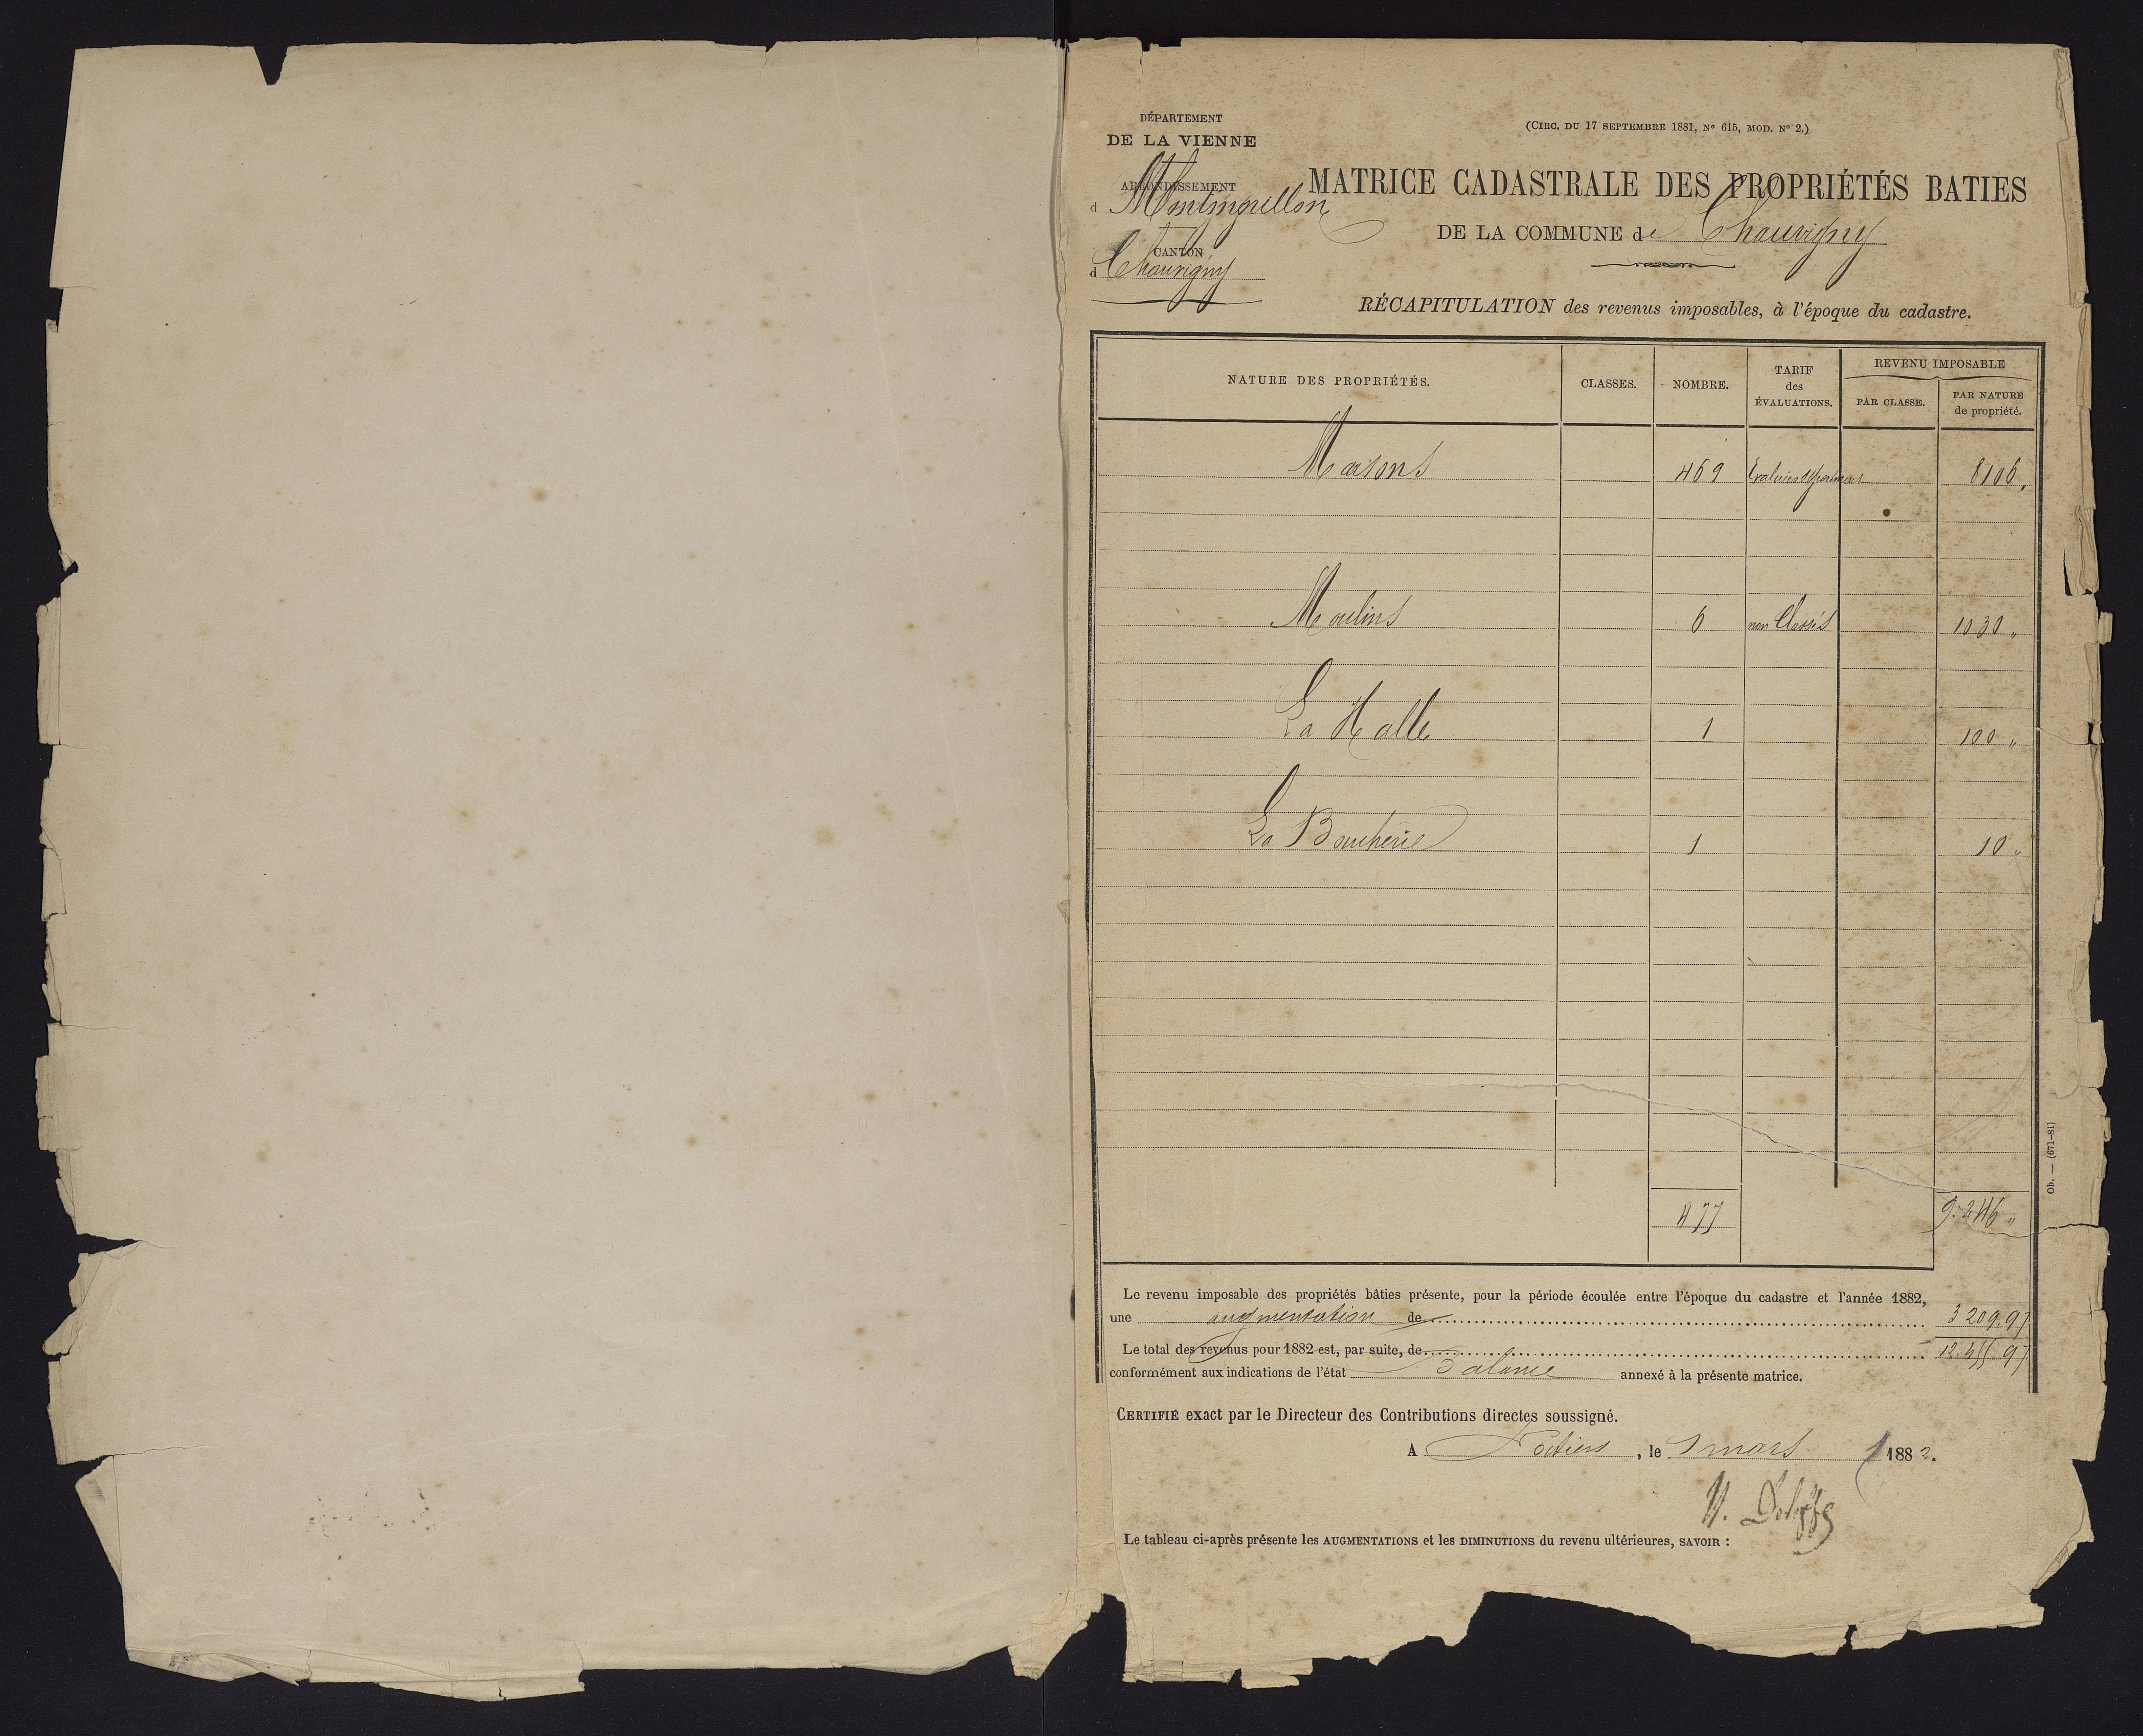 DÉPARTEMENT
DE LA VIENNE
ARRONDISSEMENT
d Montmorillon
CANTON
d Chauvigny
(CIRC. DU 17 SEPTEMBRE 1881, Nº 615, MOD. Nº 2.)
MATRICE CADASTRALE DES PROPRIÉTÉS BATIES
DE LA COMMUNE de Chauvigny
RÉCAPITULATION des revenus imposables, à l'époque du cadastre.
NATURE DES PROPRIÉTÉS. CLASSES. NOMBRE. TARIF des ÉVALUATIONS. REVENU IMPOSABLE
PAR CLASSE. PAR NATURE de propriété.
Maisons 469 Evaluées séparément 8106 "
Moulins 6 non Classés 1030 "
La Halle 1 100 "
La Boucherie 1 10 "
477 9.246 "
Le revenu imposable des propriétés bâties présente, pour la période écoulée entre l'époque du cadastre et l'année 1882,
une augmentation de 3 209.97
Le total des revenus pour 1882 est, par suite, de 12.455.97
conformément aux indications de l'état Balance annexé à la présente matrice.
CERTIFIÉ exact par le Directeur des Contributions directes soussigné.
A Poitiers, le 1 mars 1882.
Le tableau ci-après présente les AUGMENTATIONS et les DIMINUTIONS du revenu ultérieures, SAVOIR :
Ob. — (671-81)